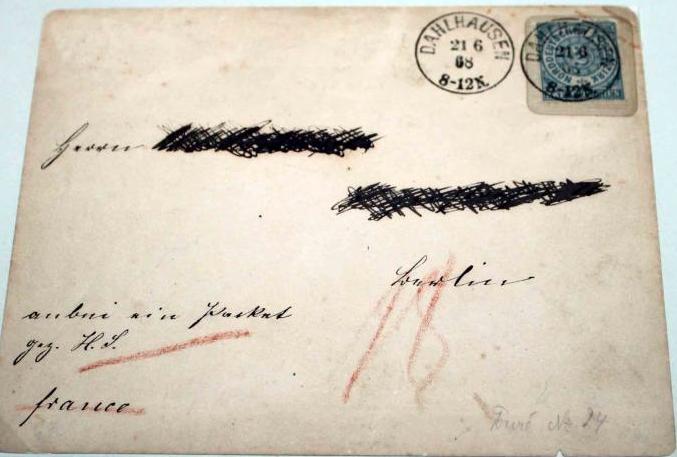 DAHLHAUSEN
21 6
68
8-12N.
DAHLHAUSEN
21 6
8-12N.
NORDDEUTSCHER
Herrn
Berlin
anbei ein Packet
gez. H. S.
franco
18
No 24